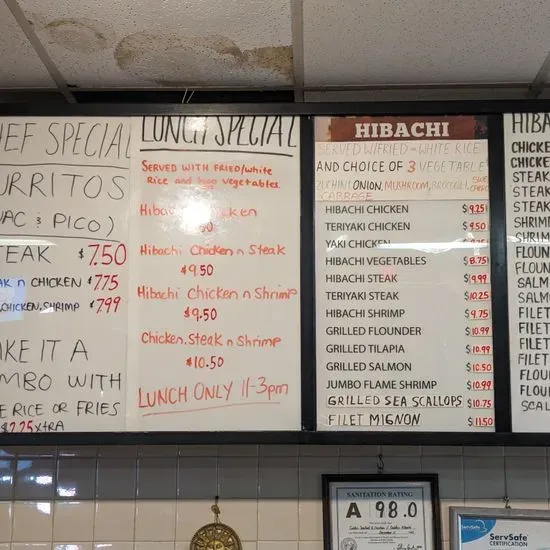 HEF SPECIAL
URRITOS
UAC & PICO)
TEAK $7.50
AK n CHICKEN $7.75
CHICKEN, SHRIMP $7.99
AKE IT A
OMBO WITH
E RICE OR FRIES
$2.25 XTRA
LUNCH SPECIAL
SERVED WITH FRIED/white
Rice and two vegetables.
Hibachi Chicken
50
Hibachi Chicken n Steak
$9.50
Hibachi Chicken n Shrimp
$9.50
Chicken, Steak n Shrimp
$10.50
LUNCH ONLY 11-3pm
HIBACHI
SERVED W/FRIED or WHITE RICE
AND CHOICE OF 3 VEGETABLE
ZUCHINI ONION, MUSHROOM, BROCCOLI,
CABBAGE
HIBACHI CHICKEN $9.25
TERIYAKI CHICKEN $9.50
YAKI CHICKEN
HIBACHI VEGETABLES $8.75
HIBACHI STEAK $9.99
TERIYAKI STEAK $10.25
HIBACHI SHRIMP $9.75
GRILLED FLOUNDER $10.99
GRILLED TILAPIA $10.99
GRILLED SALMON $10.50
JUMBO FLAME SHRIMP $10.99
GRILLED SEA SCALLOPS $10.75
FILET MIGNON $11.50
HIBA
CHICKE
CHICKE
STEAK
STEAK
SHRIM
SHRIM
FLOUN
FLOUN
SALM
SALM
FILET
FILET
FILET
FILET
FLOU
FLOU
SCAL
SANITATION RATING
A 98.0
ServSafe
ServSafe
CERTIFICATION